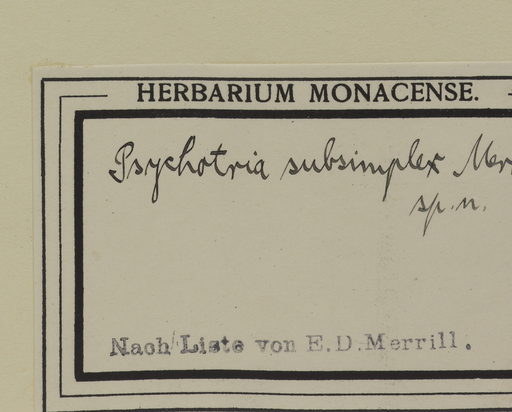 HERBARIUM MONACENSE.
Psychotria subsimplex Merr
sp. n.
Nach Liste von E.D.Merrill.